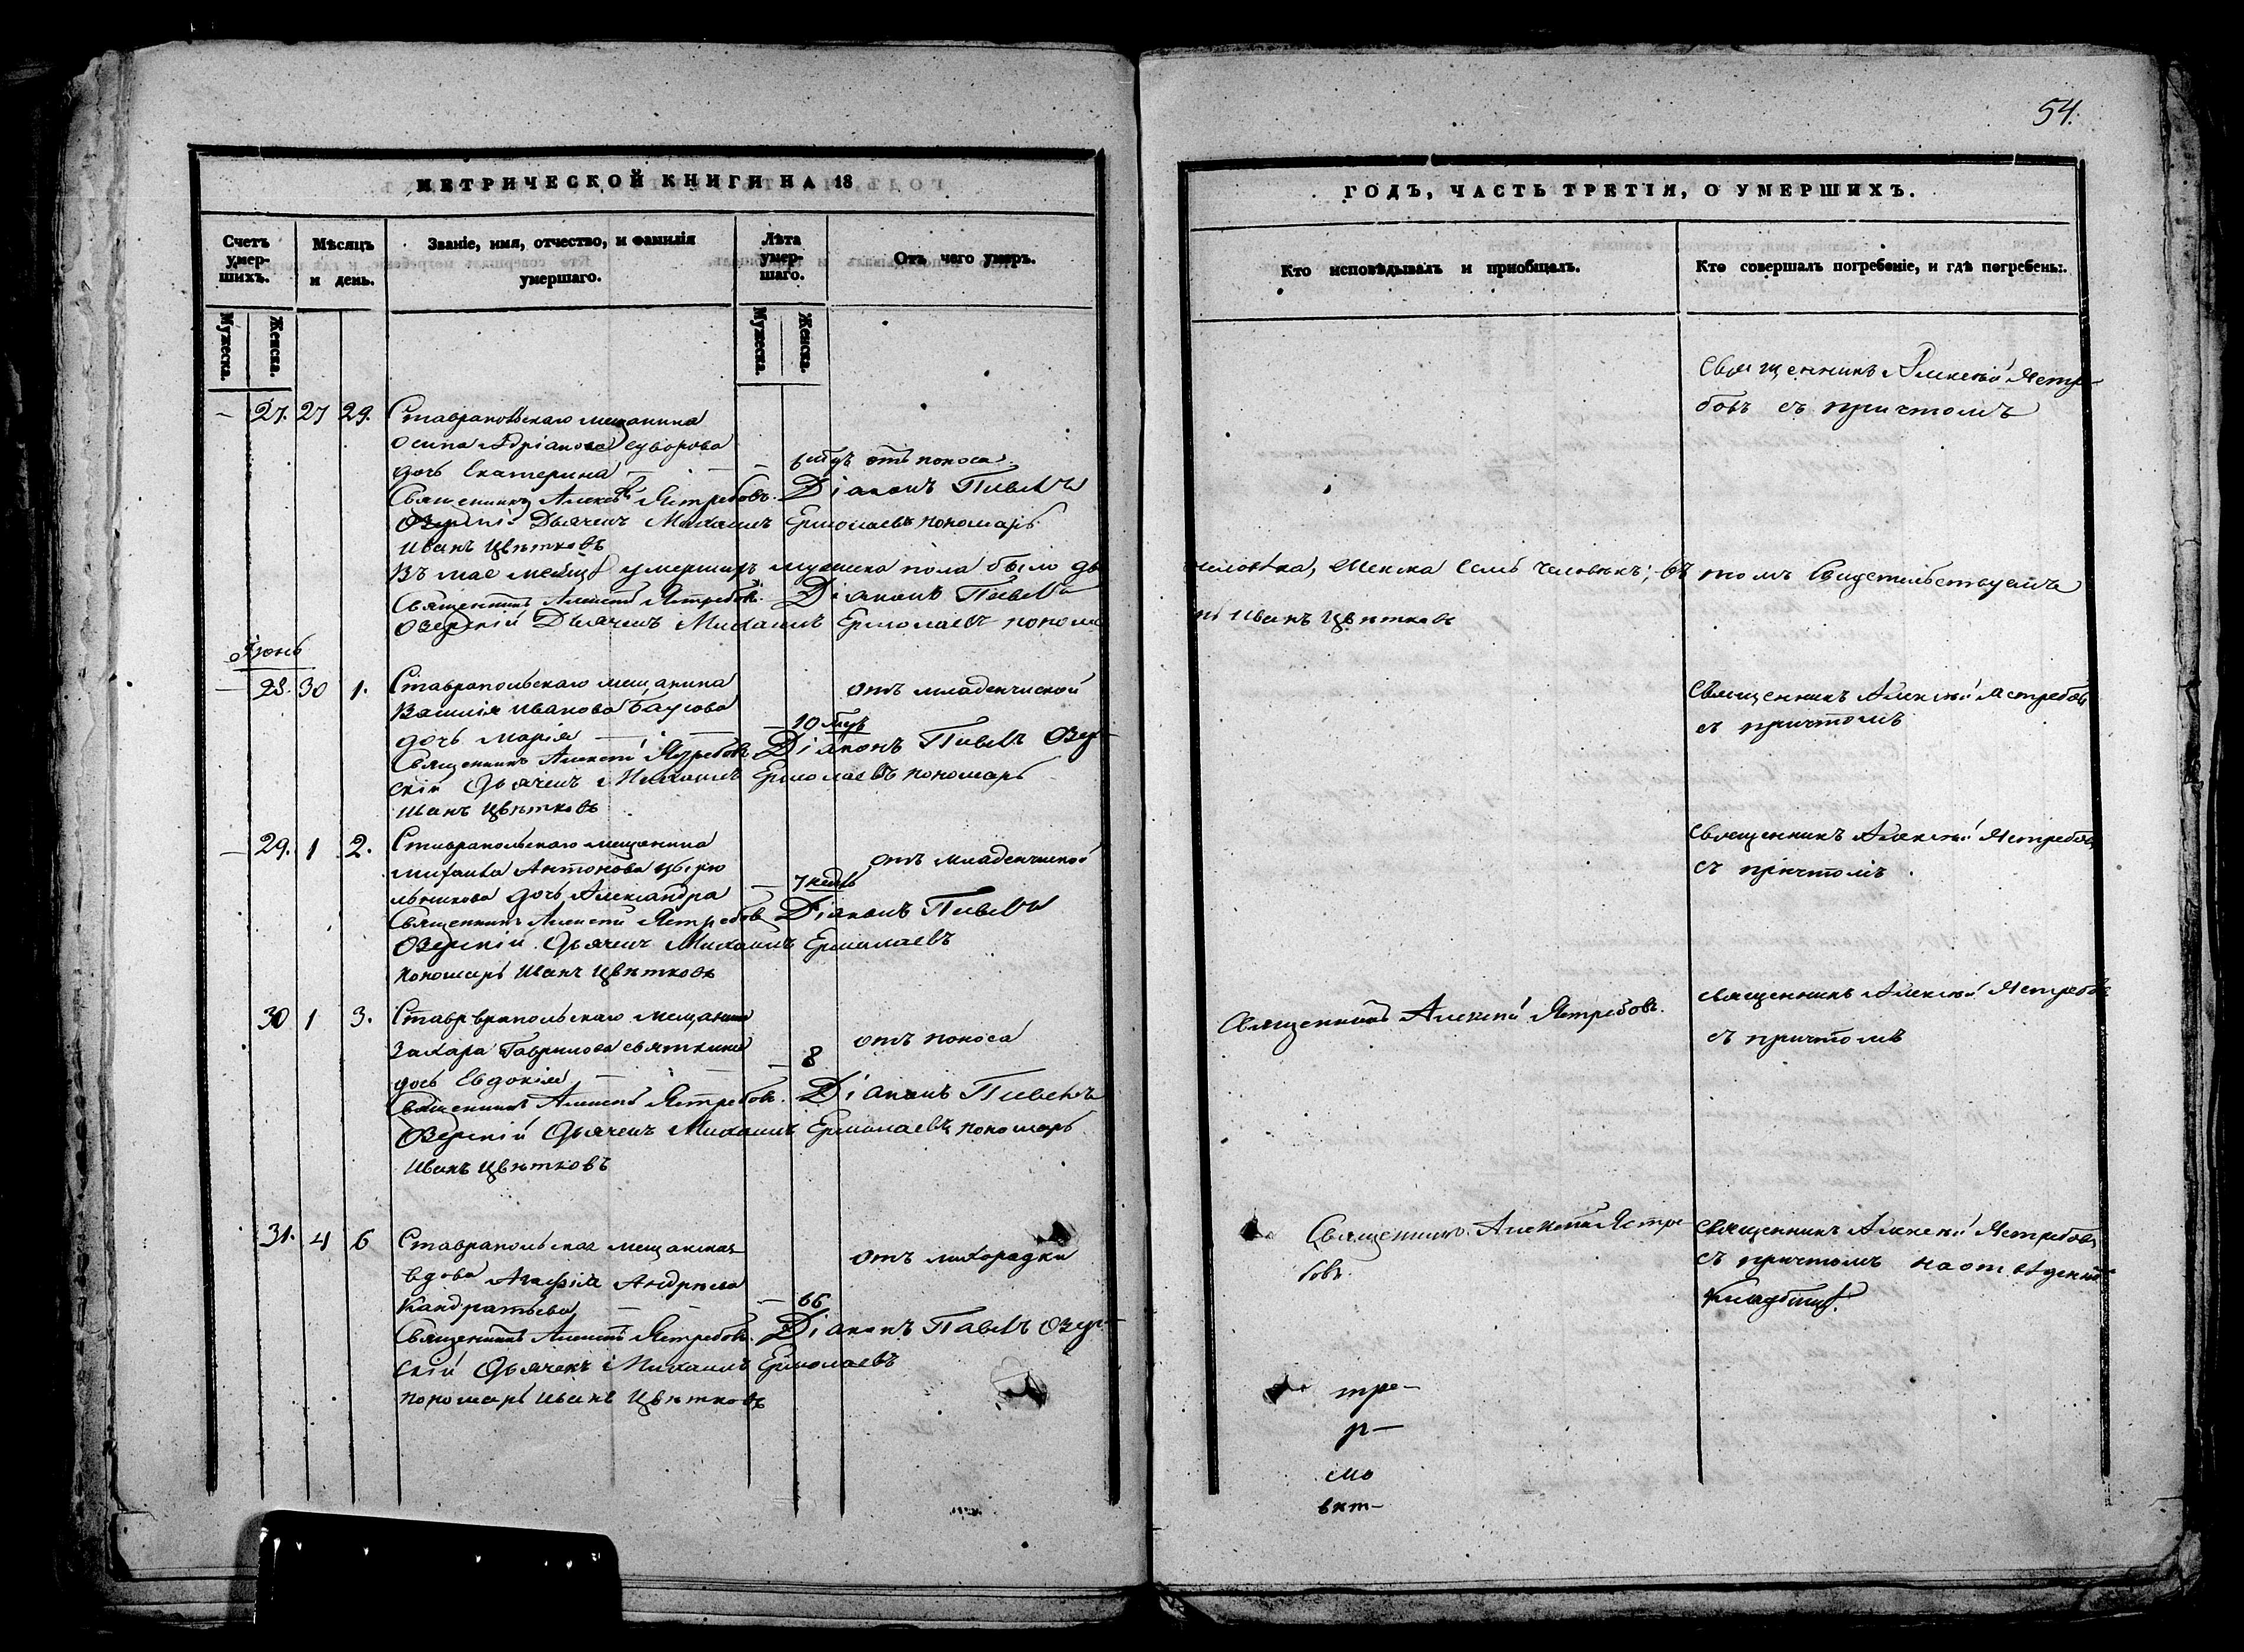 54.
МЕТРИЧЕСКОЙ КНИГИ НА 18
ГОДЪ, ЧАСТЬ ТРЕТІЯ, О УМЕРШИХЪ.
Счетъ умер-шихъ.
Мѣсяцъ и день.
Званіе, имя, отчество, и фамилія умершаго.
Лѣта умер-шаго.
Отъ чего умеръ.
Кто исповѣдывалъ и пріобщалъ.
Кто совершалъ погребеніе, и гдѣ погребены.
Мужеска.
Женска.
Мужеска.
Женска.
27. 27 29. Ставропольскаго мещанина
Осипа Адріанова Суворова
дочь Екатерина
отъ поноса
Священникъ Алексѣй Ястре-
бовъ съ причтомъ
Священникъ Алексѣй Ястребовъ. Діаконъ Павелъ
Озерскій Дьячекъ Михаилъ Ермолаевъ пономарь
Иванъ Цвѣтковъ
Въ мае месяце умершихъ мужеска пола было два
человѣка, женска семь человѣкъ; въ томъ свидетельствуемъ
Священникъ Алексѣй Ястребовъ. Діаконъ Павелъ
Озерскій Дьячекъ Михаилъ Ермолаевъ понома
рь Иванъ Цвѣтковъ
Іюнь
28. 30 1. Ставропольскаго мещанина
Василія Иванова
дочь Марія
10
отъ младенческой
Священникъ Алексѣй Ястребовъ
съ причтомъ
Священникъ Алексѣй Ястребовъ Діаконъ Павелъ Озер-
скій Дьячекъ Михаилъ Ермолаевъ пономарь
Иванъ Цвѣтковъ
29. 1 2. Ставропольскаго мещанина
Михаила Антонова Цырю
льникова дочь Александра
7 недѣль
отъ младенческой
Священникъ Алексѣй Ястребовъ
съ причтомъ
Священникъ Алексѣй Ястребовъ Діаконъ Павелъ
Озерскій Дьячекъ Михаилъ Ермолаевъ
пономарь Иванъ Цвѣтковъ
30 1 3. мещанина
Захара Гаврилова Святкина
дочь Евдокія
8
отъ поноса
Священникъ Алексѣй Ястребовъ.
Священникъ Алексѣй Ястребовъ
съ причтомъ
Священникъ Алексѣй Ястребовъ. Діаконъ Павелъ
Озерскій Дьячекъ Михаилъ Ермолаевъ пономарь
Иванъ Цвѣтковъ
31. 4 6 Ставропольская мещанская
вдова Агафія Андреева
Кандратьева
66
отъ лихорадки
Священникъ Алексѣй Ястре
бовъ.
Священникъ Алексѣй Ястребовъ
съ причтомъ на отведенномъ
кладбищѣ.
Священникъ Алексѣй Ястребовъ. Діаконъ Павелъ Озер-
скій Дьячекъ Михаилъ Ермолаевъ
пономарь Иванъ Цвѣтковъ
тре-
р-
смо
вкт-